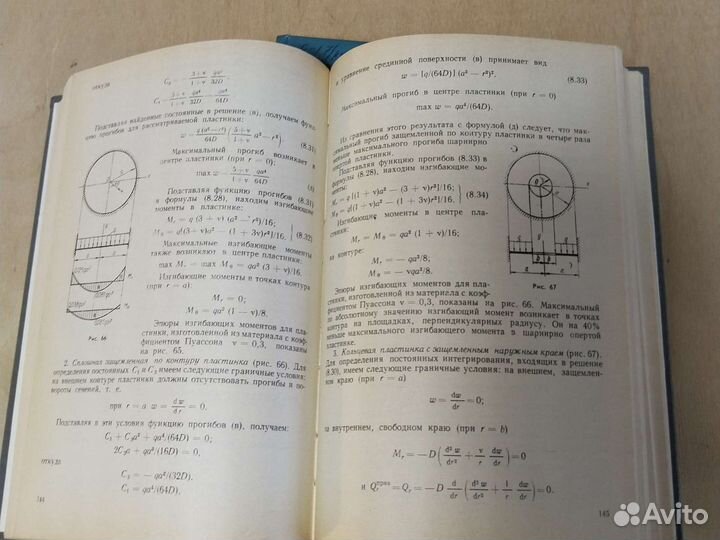 откуда
C₂ = − (3+ν)/(1+ν) qa²/(32D) ,
C₁ = (5+ν)/(1+ν) qa⁴/(64D) .
Подставляя найденные постоянные в решение (в), получаем функ-
цию прогибов для рассматриваемой пластинки:
w = q(a²−r²)/(64D) ( (5+ν)/(1+ν) a² − r² ). (8.31)
Максимальный прогиб возникает в
центре пластинки (при r = 0):
max w = (5+ν)/(1+ν) qa⁴/(64D) . (д)
Подставляя функцию прогибов (8.31)
в формулы (8.28), находим изгибающие
моменты в пластинке:
Mᵣ = q (3 + ν) (a² − r²)/16; }
M_θ = q[(3+ν)a² − (1 + 3ν)r²]/16. } (8.32)
Максимальные изгибающие моменты
также возникают в центре пластинки:
max Mᵣ = max M_θ = qa² (3 + ν)/16.
Изгибающие моменты в точках контура
(при r = a):
Mᵣ = 0;
M_θ = qa² (1 − ν)/8.
Рис. 66
Эпюры изгибающих моментов для пла-
стинки, изготовленной из материала с коэф-
фициентом Пуассона ν = 0,3, показаны
на рис. 65.
2. Сплошная защемленная по контуру пластинка (рис. 66). Для
определения постоянных C₁ и C₂ имеем следующие граничные условия:
на внешнем контуре пластинки должны отсутствовать прогибы и по-
вороты сечений, т. е.
при r = a w = dw/dr = 0.
Подставляя в эти условия функцию прогибов (в), получаем:
C₁ + C₂a² + qa⁴/(64D) = 0;
2C₂a + qa³/(16D) = 0,
откуда
C₂ = − qa²/(32D),
C₁ = qa⁴/(64D).
144
а уравнение срединной поверхности (в) принимает вид
w = [q/(64D)] (a² − r²)². (8.33)
Максимальный прогиб в центре пластинки (при r = 0)
max w = qa⁴/(64D).
Из сравнения этого результата с формулой (д) следует, что мак-
симальный прогиб защемленной по контуру пластинки в четыре раза
меньше максимального прогиба шарнирно
опертой пластинки.
Подставляя функцию прогибов (8.33) в
формулы (8.28), находим изгибающие мо-
менты:
Mᵣ = q [(1 + ν)a² − (3 + ν)r²]/16; }
M_θ = q[(1 + ν)a² − (1 + 3ν)r²]/16. } (8.34)
Изгибающие моменты в центре пла-
стинки:
Mᵣ = M_θ = qa² (1 + ν)/16;
на контуре:
Mᵣ = − qa²/8;
M_θ = − νqa²/8.
Рис. 67
Эпюры изгибающих моментов для пла-
стинки, изготовленной из материала с коэф-
фициентом Пуассона ν = 0,3, показаны на рис. 66. Максимальный
по абсолютному значению изгибающий момент возникает в точках
контура на площадках, перпендикулярных радиусу. Он на 40%
меньше максимального изгибающего момента в шарнирно опертой
пластинке.
3. Кольцевая пластинка с защемленным наружным краем (рис. 67).
Для определения постоянных интегрирования, входящих в решение
(8.30), имеем следующие граничные условия: на внешнем, защемлен-
ном краю (при r = a)
w = dw/dr = 0;
на внутреннем, свободном краю (при r = b)
Mᵣ = −D ( d²w/dr² + ν/r dw/dr ) = 0
и Qᵣᵖᵖᵉᵇ = Qᵣ = − D d/dr ( d²w/dr² + 1/r dw/dr ) = 0.
145
Avito